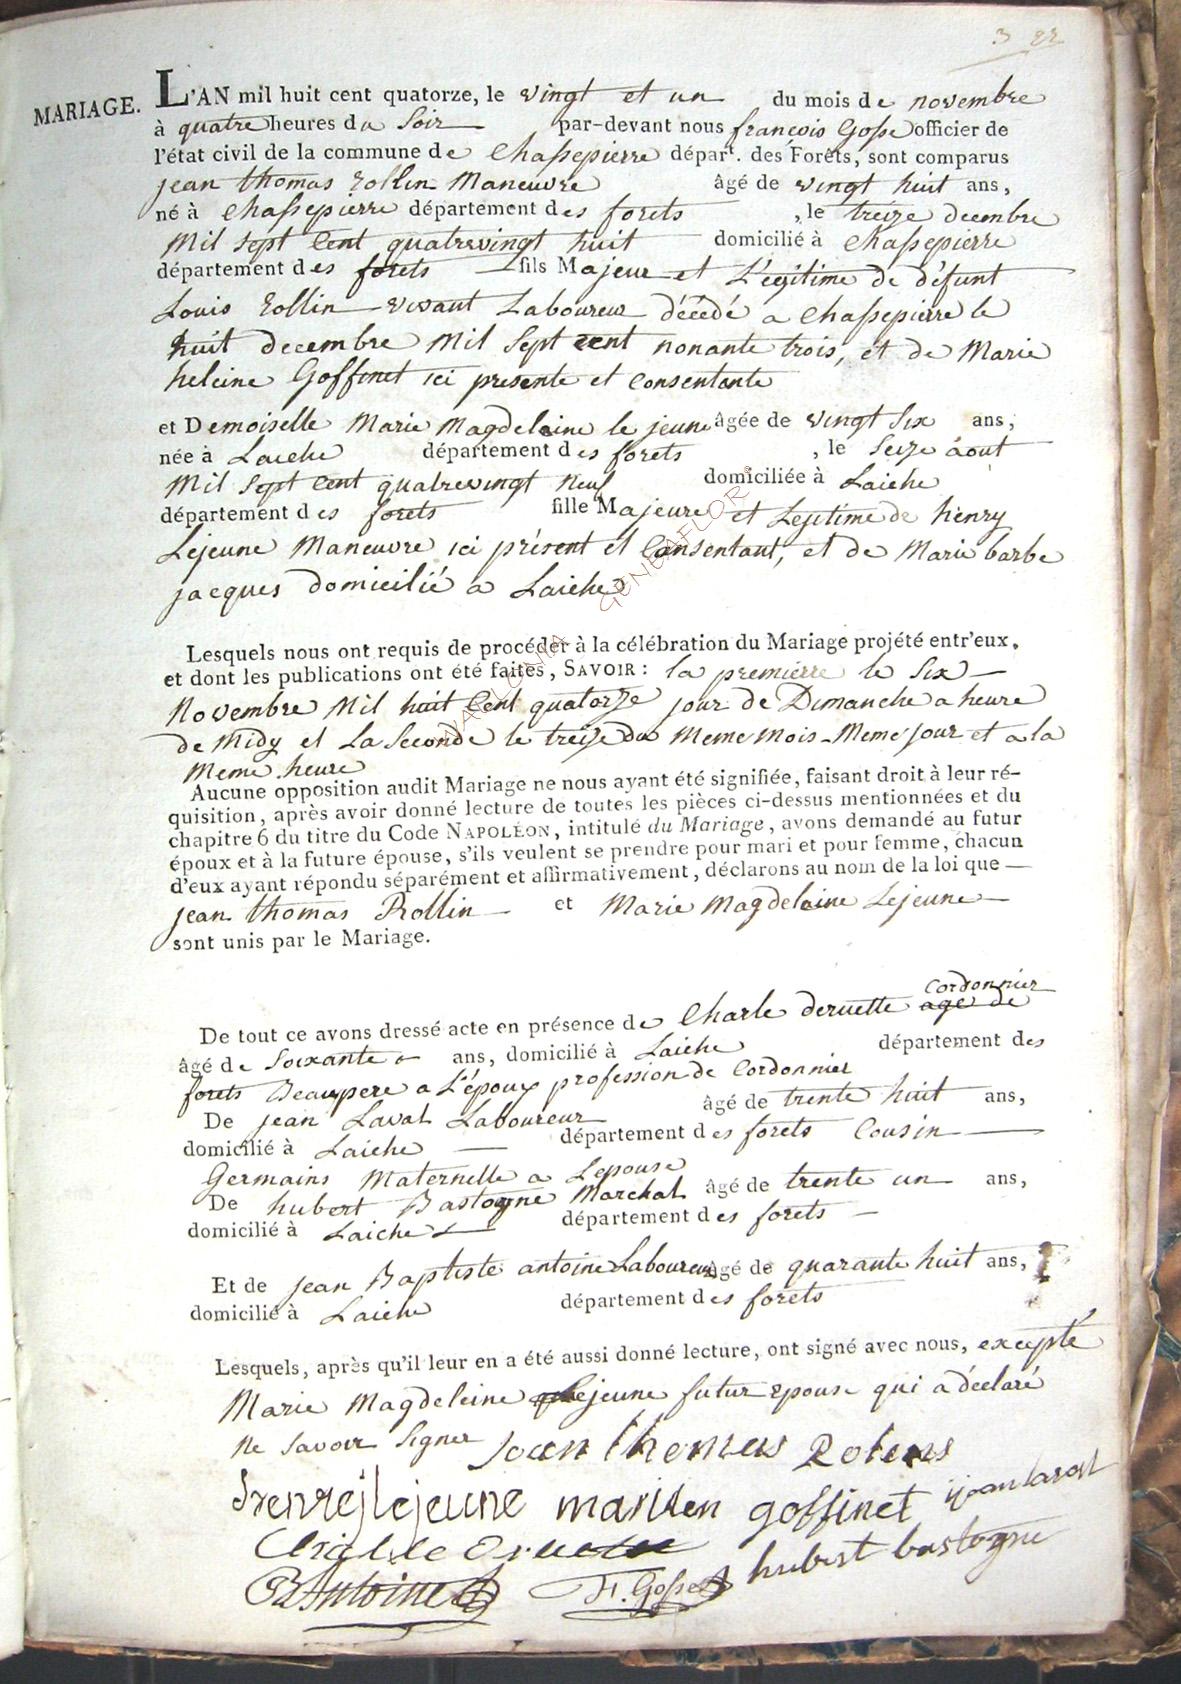 3 22
MARIAGE.
L'AN mil huit cent quatorze, le vingt et un du mois de novembre
à quatre heures du Soir par-devant nous françois Gosse officier de
l'état civil de la commune de Chassepierre départ. des Forêts, sont comparus
jean thomas rollin Maneuvre âgé de vingt huit ans,
né à Chassepierre département des forets, le treize decembre
Mil sept Cent quatrevingt huit domicilié à Chassepierre
département des forets fils Majeur et L'egitime de défunt
Louis rollin vivant Laboureur décédé a Chassepierre le
huit decembre Mil Sept cent nonante trois, et de Marie
heleine Goffinet ici presente et Consentante
et Demoiselle Marie Magdelaine le jeune âgée de vingt Six ans,
née à Laiche département des forets, le Seize aout
Mil Sept Cent quatrevingt Neuf domiciliée à Laiche
département des forets fille Majeure et Legitime de henry
Lejeune Maneuvre ici présent et Consentant, et de Marie barbe
jacques domicilié a Laiche
Lesquels nous ont requis de procéder à la célébration du Mariage projété entr'eux,
et dont les publications ont été faites, SAVOIR : la premierre le Six
Novembre Mil huit Cent quatorze jour de Dimanche a heure
de Midy et La Seconde le treize du Meme Mois Meme jour et a la
Meme heure
Aucune opposition audit Mariage ne nous ayant été signifiée, faisant droit à leur ré-
quisition, après avoir donné lecture de toutes les pièces ci-dessus mentionnées et du
chapitre 6 du titre du Code NAPOLÉON, intitulé du Mariage, avons demandé au futur
époux et à la future épouse, s'ils veulent se prendre pour mari et pour femme, chacun
d'eux ayant répondu séparément et affirmativement, déclarons au nom de la loi que
jean thomas Rollin et Marie Magdelaine Lejeune
sont unis par le Mariage.
Cordonnier
De tout ce avons dressé acte en présence de Charle deruette age de
âgé de Soixante ans, domicilié à Laiche département des
forets Beaupere a L'époux profession de Cordonnier
De jean Laval Laboureur âgé de trente huit ans,
domicilié à Laiche département des forets Cousin
Germains Maternelle a Lepouse
De hubert Bastogne Marchal âgé de trente un ans,
domicilié à Laiche département des forets
Et de jean Baptiste antoine Laboureur âgé de quarante huit ans,
domicilié à Laiche département des forets
Lesquels, après qu'il leur en a été aussi donné lecture, ont signé avec nous, excepté
Marie Magdeleine Lejeune futur epouse qui a déclaré
Ne Savoir Signer Joan Thomas Rolens
henrej lejeune marilen goffinet ijean laval
Charle Druette
Bte Antoine F. Gosse hubert bastogne
WALLONIA GENEAFLOR